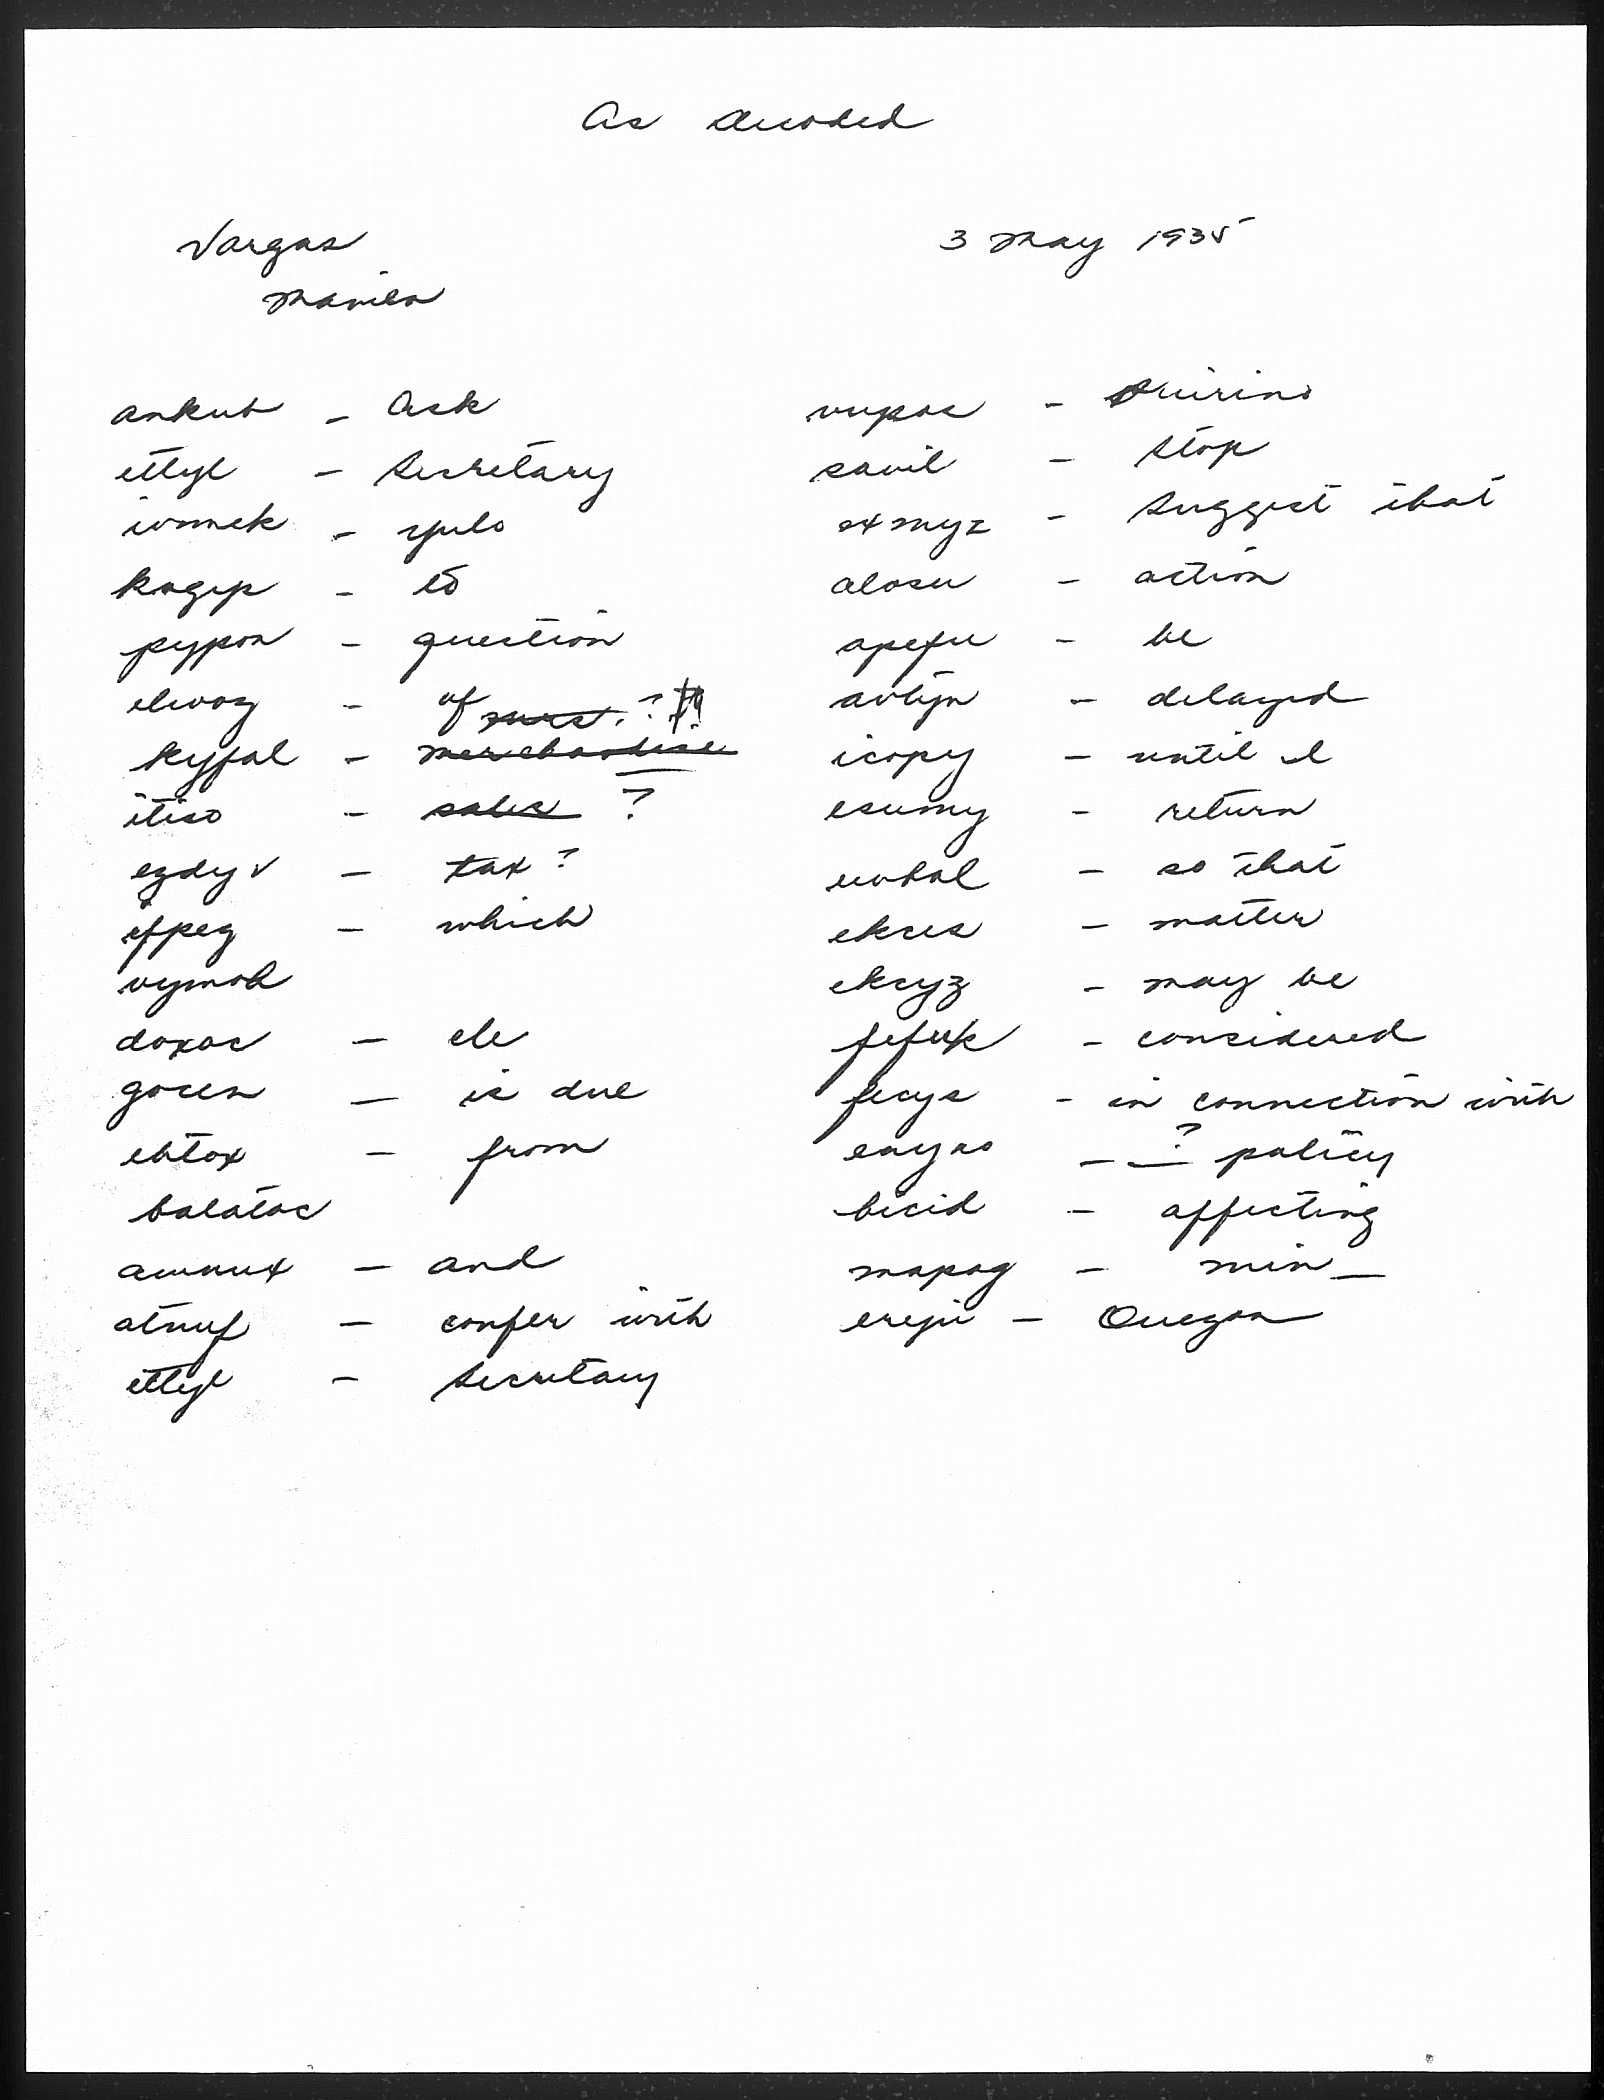 As decoded
Vargas
Manila
3 May 1935
ankub - Ask
ettyl - Secretary
ivnmek - Yulo
kogyp - to
pypon - question
elwog - of
kyfal - merchandise
itiso - sales ?
ezdyv - tax ?
ifpeg - which
vymob
doxoc - ele
gocen - is due
ebtox - from
balatac
awnux - and
atnuf - confer with
ettyl - Secretary
vupac - Quirino
savil - stop
oxmyz - suggest that
alosu - action
apefu - be
avtyn - delayed
icopy - until I
esumy - return
uvbal - so that
ekses - matter
eksyz - may be
fefuk - considered
fecys - in connection with
enyao - __? policy
bicid - affecting
mapag - min __
ereju - Quezon